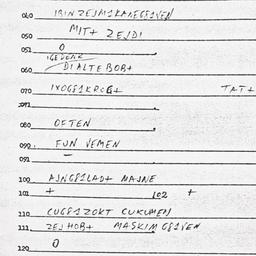 040 IBIN ZEJM1KANEG81VEN
050 MIT+ ZEJDI
051 0
IGEDENK
060 DIALTEBOB+
070 IX0G81KROG+ TAT+
071
080 OFTEN
090 FUN VEMEN
091 —
100 AJNG81LAD+ NAJNE
101 + 102 +
110 CUG81ZOKT CUKUMEN
111 ZEJHOB+ MASKIM G81VEN
120 0